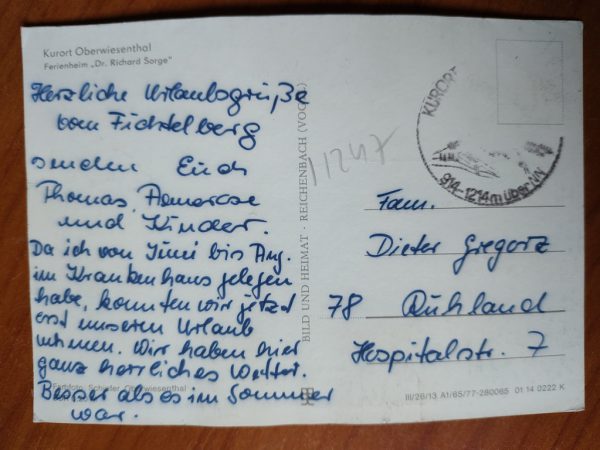 Kurort Oberwiesenthal
Ferienheim „Dr. Richard Sorge"
Herzliche Urlaubsgrüße
vom Fichtelberg
senden Euch
Thomas,
und Kinder.
Da ich von Juni bis Aug.
im Krankenhaus gelegen
habe, konnten wir jetzt
erst unseren Urlaub
nehmen. Wir haben hier
ganz herrliches Wetter.
Besser als es im Sommer
war.
Farbfoto: Oberwiesenthal
BILD UND HEIMAT · REICHENBACH (VOGTL)
11247
KURORT
914-1214m über NN
Fam.
Dieter Gregorz
78 Ruhland
Hospitalstr. 7
III/26/13 A1/65/77-280065 01 14 0222 K